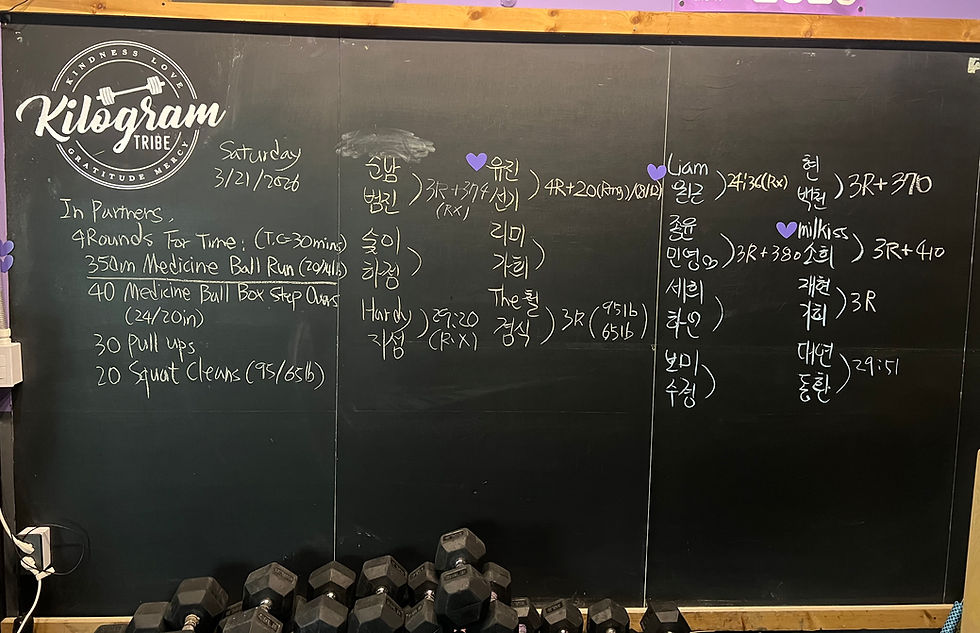 KINDNESS LOVE
Kilogram
TRIBE
GRATITUDE MERCY
Saturday
3/21/2026
In Partners,
4 Rounds For Time: (T.C=30mins)
350m Medicine Ball Run (20/14lb)
40 Medicine Ball Box Step Overs
(24/20in)
30 Pull ups
20 Squat Cleans (95/65lb)
수밤
범진
3R+374
(RX)
슬이
하정
Hardy
지섭
29:20
(RX)
유진
선기
4R+20(Ring)
리미
가희
The 헐
경식
3R (95lb
65lb)
Liam
24:36(Rx)
종윤
민영
3R+380
세희
화인
보미
수정
현
박천
3R+370
milkiss
소희
3R+410
재현
기희
3R
대연
동환
29:51